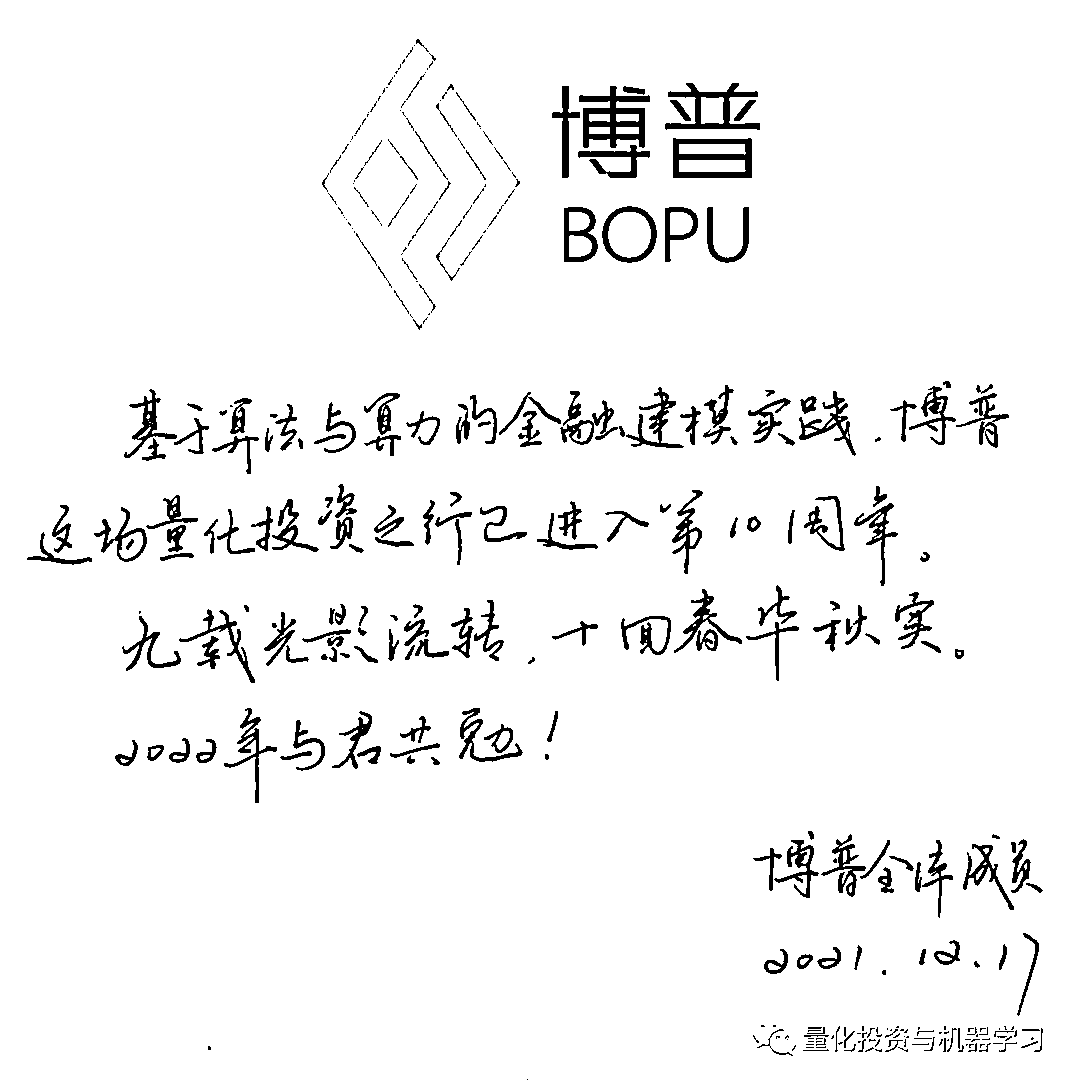 博普
BOPU
基于算法与算力的金融建模实践，博普
这场量化投资之行已进入第10周年。
九载光影流转，十回春华秋实。
2022年与君共勉！
博普全体成员
2021.12.17
量化投资与机器学习